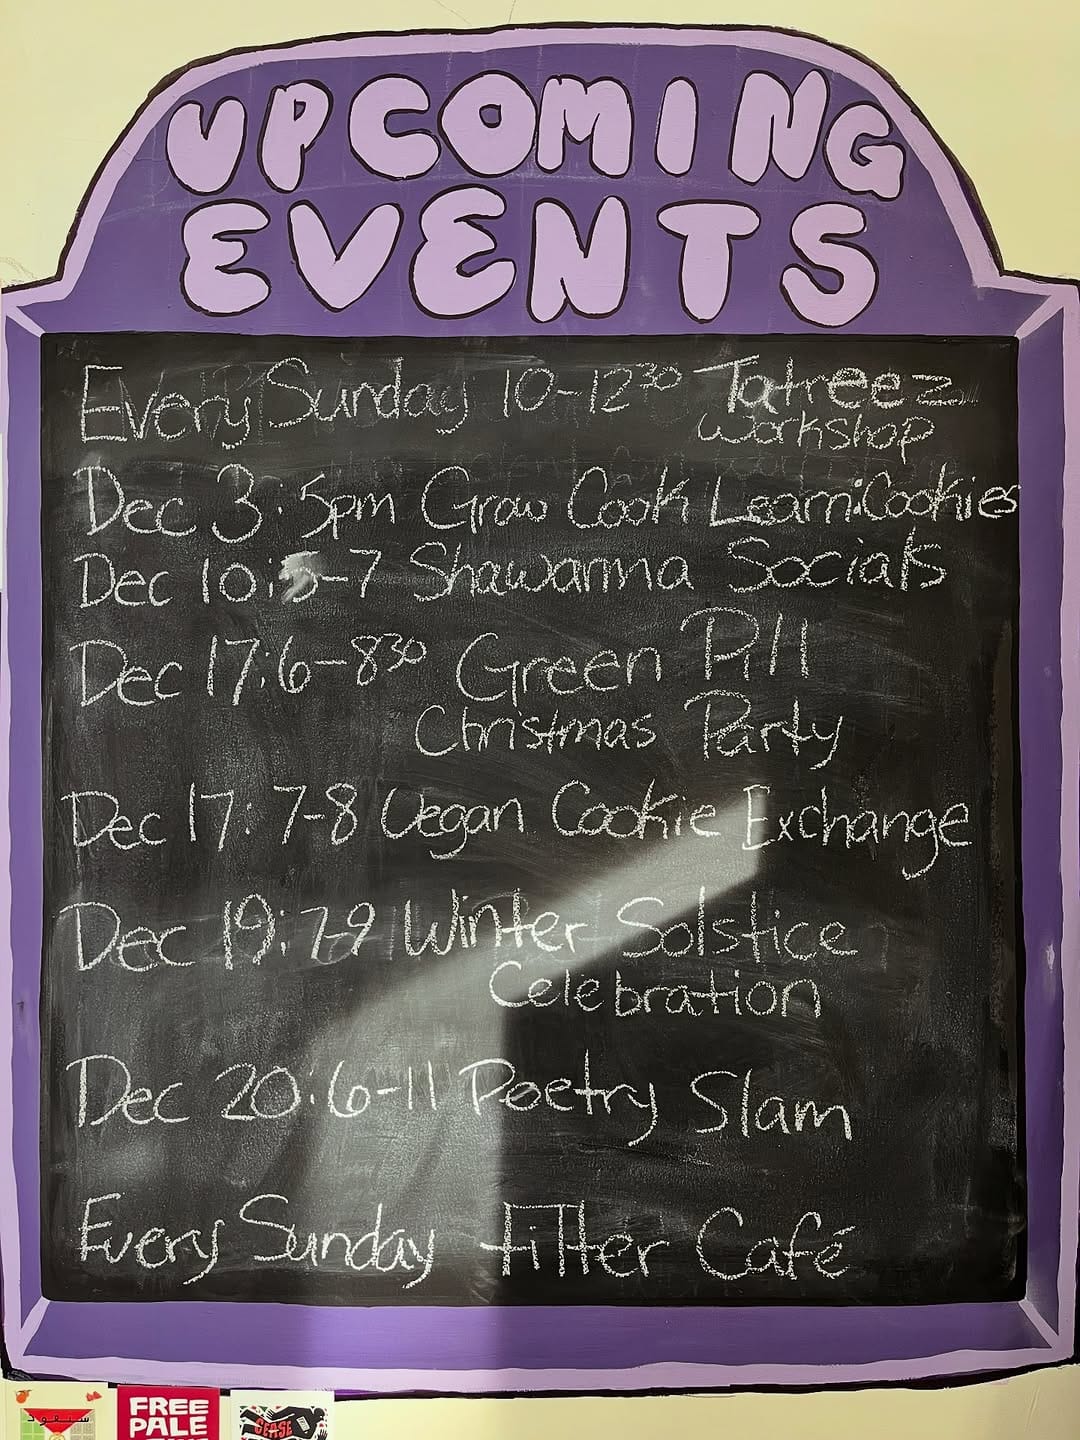 UPCOMING
EVENTS
Every Sunday 10-12³⁰ Tatreez
workshop
Dec 3: 5pm Grow Cook Learn: Cookies
Dec 10: 5-7 Shawarma Socials
Dec 17: 6-8³⁰ Green Pill
Christmas Party
Dec 17: 7-8 Vegan Cookie Exchange
Dec 19: 7-9 Winter Solstice
Celebration
Dec 20: 6-11 Poetry Slam
Every Sunday Filter Café
سنعود
FREE
PALE
CEASE